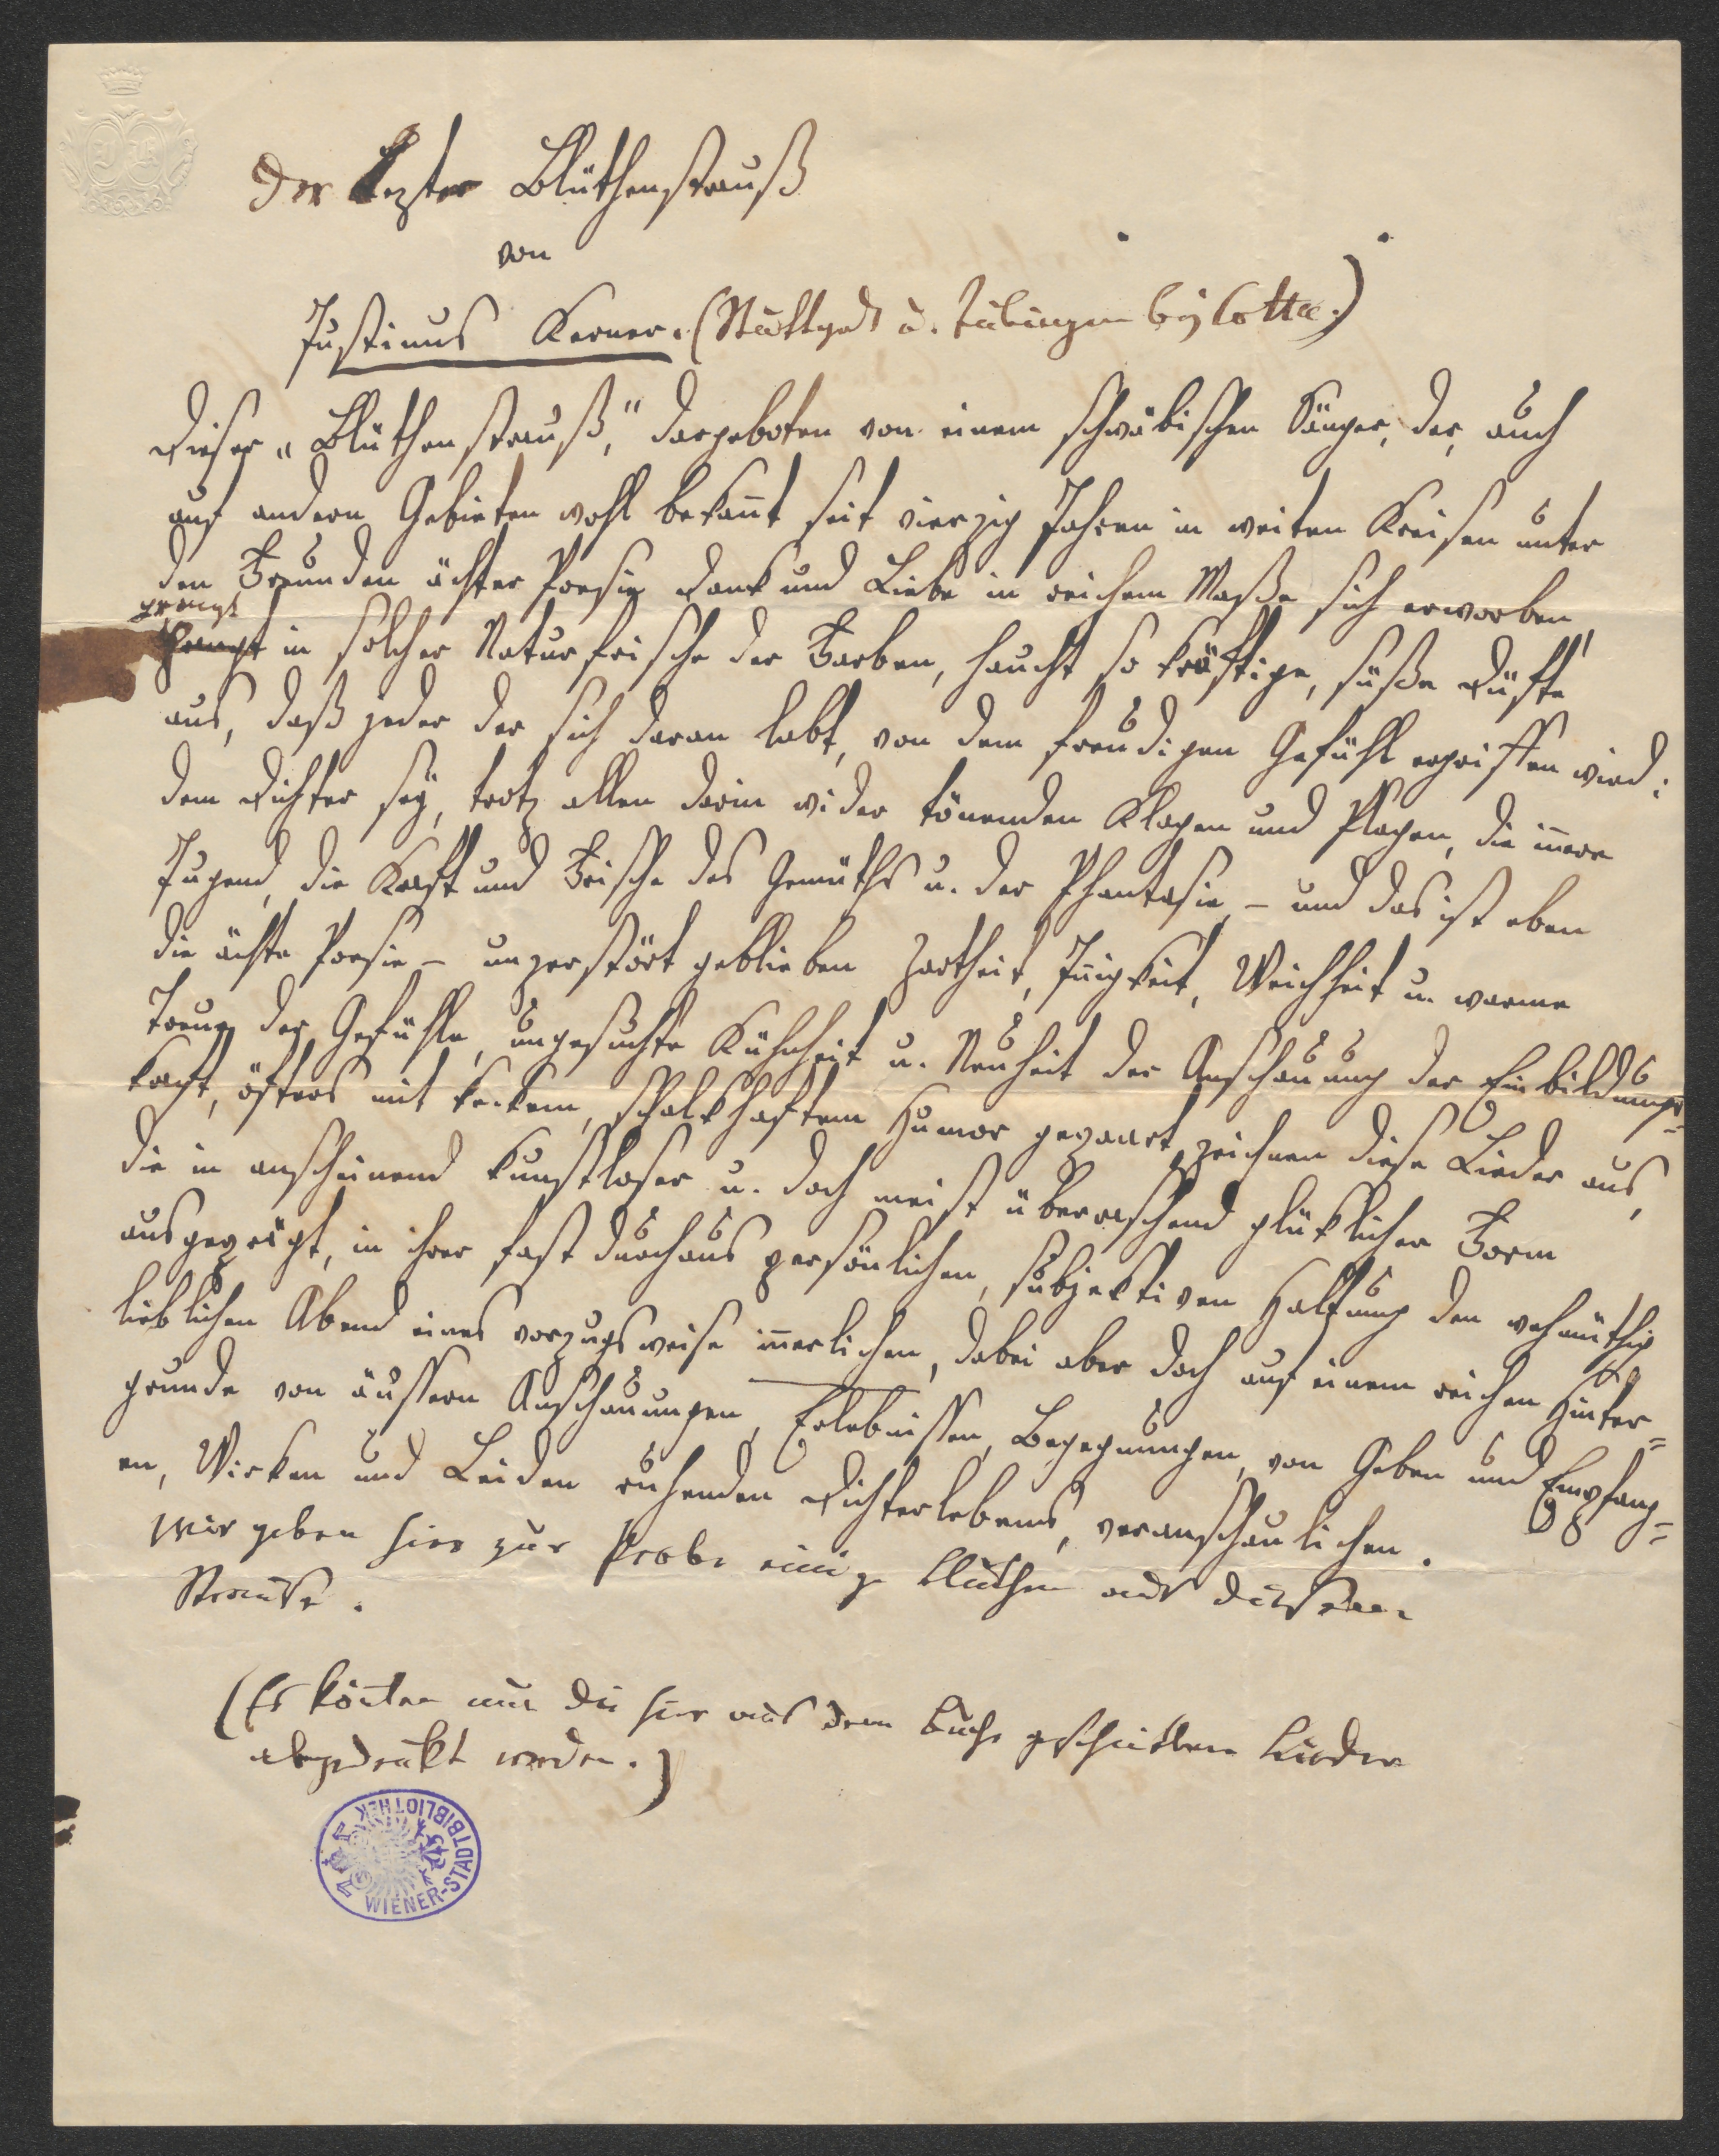 Der lezte Blüthenstrauß
von
Justinus Kerner. (Stuttgart u. Tübingen bej Cotta.)
Dieser „Blüthenstrauß," dargeboten von einem schwäbischen Sänger, der, auch
auf andern Gebieten wohl bekan̄t seit vierzig Jahren in weiten Kreisen unter
den Freunden ächter Poesie Dank und Liebe in reichem Maße sich erworben,
prangt
in solcher Naturfrische der Farben, haucht so kräftige, süße Düfte
aus, daß jeder der sich daran labt, von dem freudigen Gefühl ergriffen wird:
dem Dichter seÿ, trotz allen darin wider tönenden Klagen und Plagen, die in̄ere
Jugend, die Kraft und Frische des Gemüths u. der Phantasie, – und das ist eben
die ächte Poesie – unzerstört geblieben Zartheit, In̄igkeit, Weichheit u. warme
Treue der Gefühle, ungesuchte Kühnheit u. Neuheit der Anschauung der Einbildungs=
kraft, öfters mit keckem, schalkhaftem Humor gepaart, zeichnen diese Lieder aus,
die in anscheinend kunstloser u. doch meist überraschend glüklicher Form
ausgeprägt, in ihrer fast durchaus persönlichen, subjektiven Haltung den wehmüthig
lieblichen Abend eines vorzugsweise in̄erlichen, dabei aber doch auf einem reichen Hinter=
grunde von äussern Anschauungen, Erlebnissen, Begegnungen, von Geben und Empfang=
en, Wirken und Leiden ruhenden Dichterlebens, veranschaulichen.
Wir geben hier zur Probe einige Blüthen aus diesem
Strauße.
(Es kön̄ten nur die hier aus dem Buche geschnittenen Lieder
abgedrukt werden.)
WIENER-STADTBIBLIOTHEK